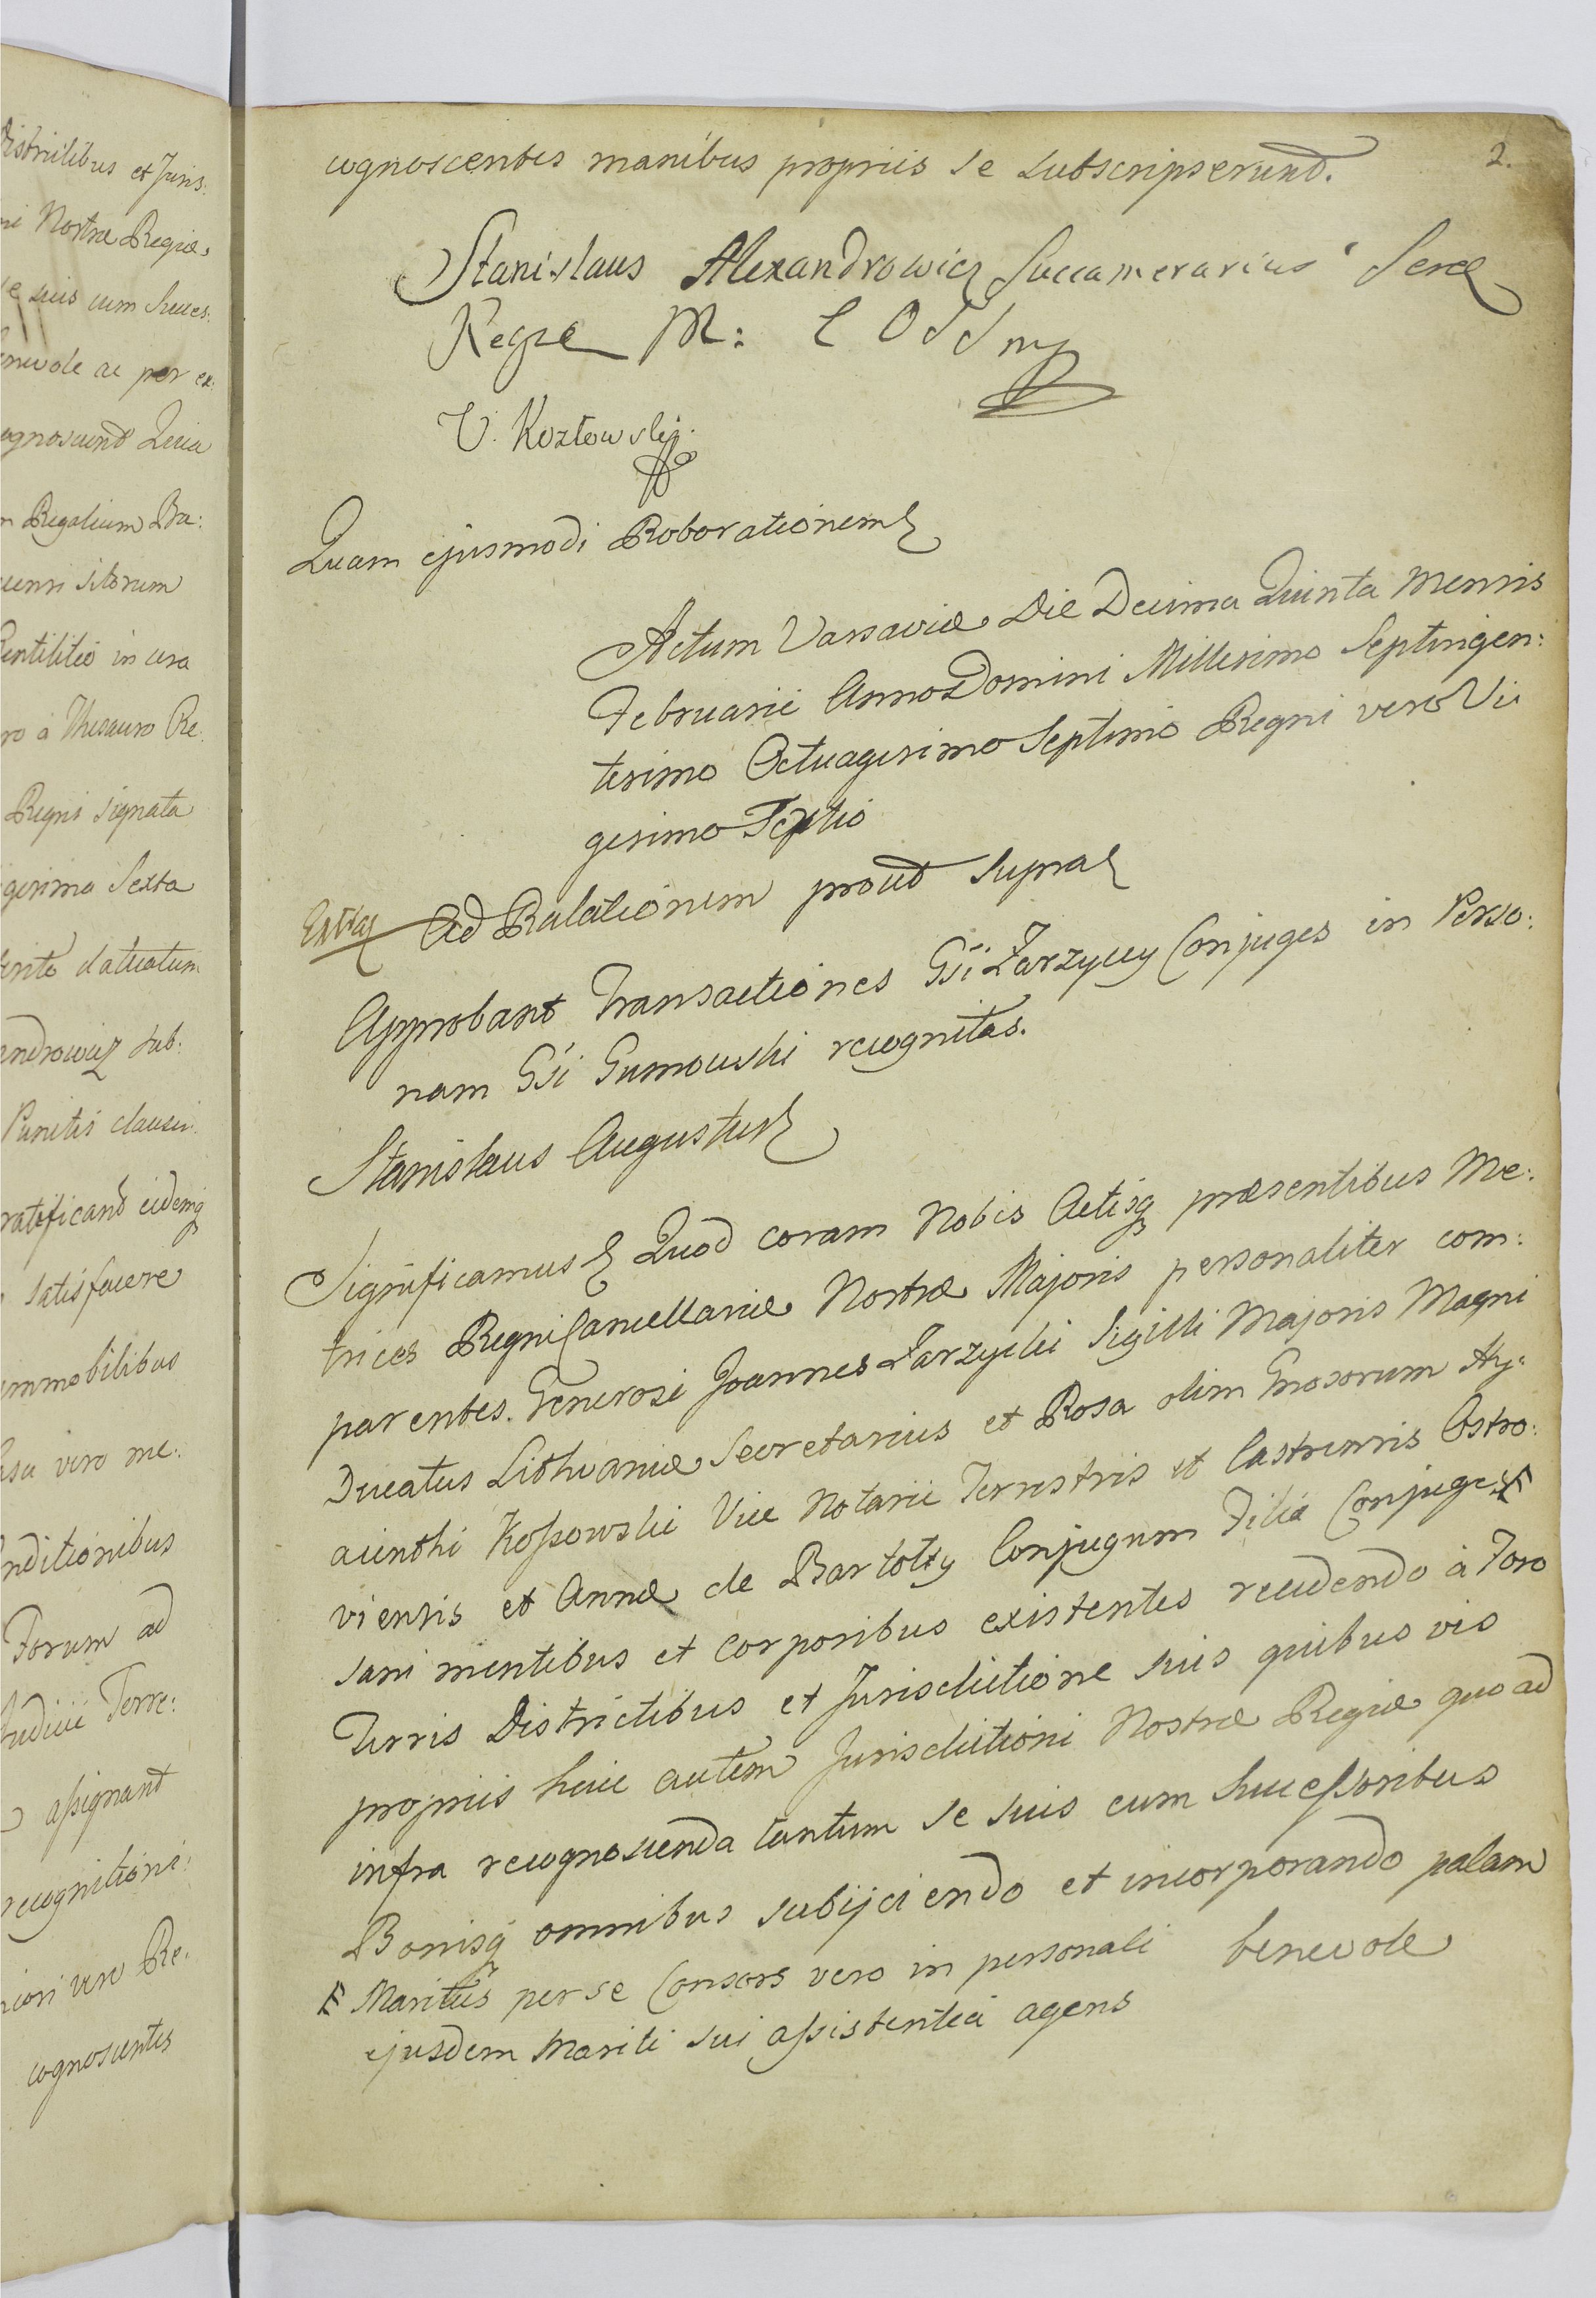 Distrilibus et Juris:
ni Nostræ Regiæ,
se suis cum Succes:
enevole ac per ex:
ognoscunt Quia
m Regalium Ba:
uensi sitorum
Gentilitio in cera
ro a Thesauro Re
Regni signata
gesima Sexta
datuatum
androwicz sub:
Punctis clausu:
ratificant eidemq
satisfacere
immobilibus
vero me:
nditionibus
Forum ad
Judicii Terre:
assignant
recognitioni:
vero Re:
cognoscentes
2.
cognoscentes manibus propriis se subscripserunt.
Stanislaus Alexandrowicz Succamerarius Sere
Regæ M:
V. Kozłowski
Quam ejusmodi Roborationem
Actum Varsaviæ Die Decima Quinta Mensis
Februarii Anno Domini Millesimo Septingen:
tesimo Octuagesimo Septimo Regni vero Vi:
gesimo Tertio
Extrad Ad Ralationem prout supra
Approbant Transactiones Gsi Zarzyccy Conjuges in Perso:
nam Gsi Gumowski recognitas.
Stanislaus Augustus
Significamus Quod coram Nobis Actisq præsentibus Me:
trices Regni Cancellariæ Nostræ Majoris personaliter com:
parentes. Generosi Joannes Zarzycki Sigilli Majoris Magni
Ducatus Lithvaniæ Secretarius et Rosa olim Gnosorum Hy:
acinthi Kossowski Vice Notarii Terrestris et Castrensis Ostro:
viensis et Annæ de Bartolty Conjugum Filia Conjuges #
sani mentibus et corporibus existentes recedendo à Foro
Terris Districtibus et Jurisdictione suis quibus vis
propriis huic autem Jurisdictioni Nostræ Regiæ quo ad
infra recognoscenda tantum se suis cum Successoribus
Bonisq omnibus subijciendo et incorporando palam
benevole
# Maritus per se Consors vero in personali
ejusdem Mariti sui assistentia agens